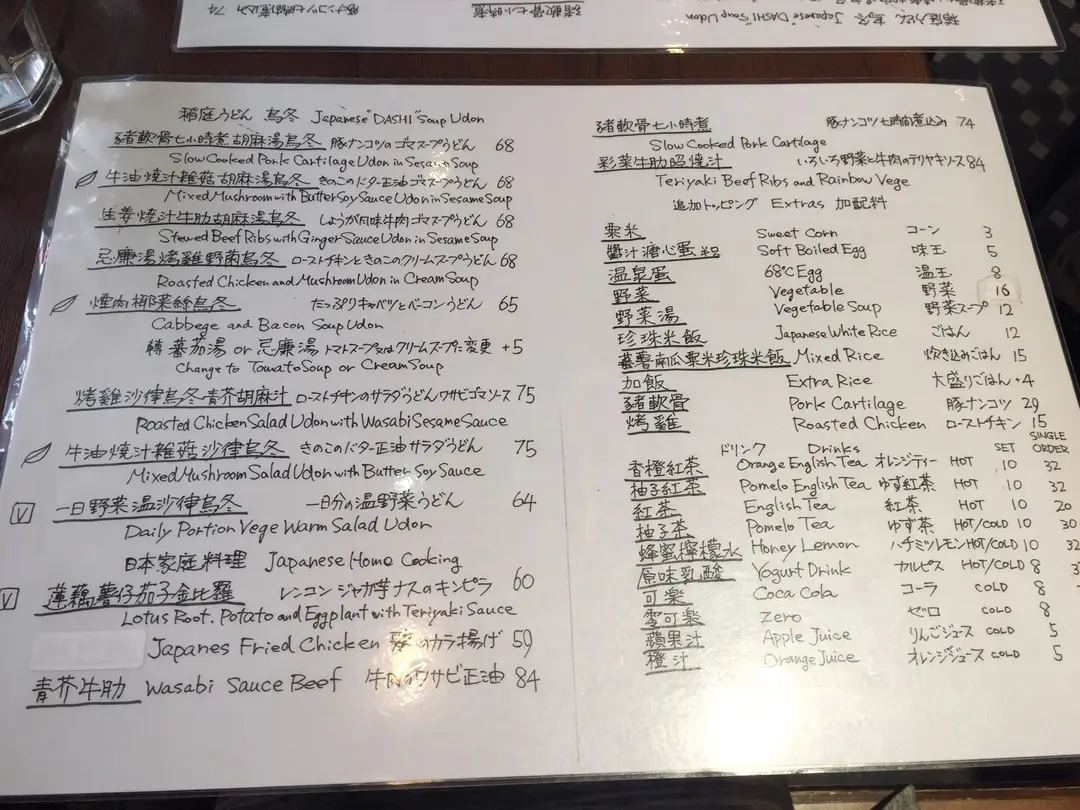 稲庭うどん 烏冬 Japanese "DASHI" Soup Udon
豬軟骨七小時煮胡麻湯烏冬 豚ナンコツのゴマスープうどん 68
Slow Cooked Pork Cartilage Udon in Sesame Soup
牛油燒汁雜菇胡麻湯烏冬 きのこのバター正油ゴマスープうどん 68
Mixed Mushroom with Butter Soy Sauce Udon in Sesame Soup
生姜燒汁牛肋胡麻湯烏冬 しょうが風味牛肉ゴマスープうどん 68
Stewed Beef Ribs with Ginger Sauce Udon in Sesame Soup
忌廉湯烤雞野菌烏冬 ローストチキンときのこのクリームスープうどん 68
Roasted Chicken and Mushroom Udon in Cream Soup
煙肉椰菜絲烏冬 たっぷりキャベツとベーコンうどん 65
Cabbege and Bacon Soup Udon
轉蕃茄湯 or 忌廉湯 トマトスープ又はクリームスープに変更 +5
Change to Towato Soup or Cream Soup
烤雞沙律烏冬青芥胡麻汁 ローストチキンのサラダうどんワサビゴマソース 75
Roasted Chicken Salad Udon with Wasabi Sesame Sauce
牛油燒汁雜菇沙律烏冬 きのこのバター正油サラダうどん 75
Mixed Mushroom Salad Udon with Butter Soy Sauce
V 一日野菜温沙律烏冬 一日分の温野菜うどん 64
Daily Portion Vege Warm Salad Udon
日本家庭料理 Japanese Home Cooking
V 蓮藕薯仔茄子金比羅 レンコンジャガ芋ナスのキンピラ 60
Lotus Root, Potato and Eggplant with Teriyaki Sauce
Japanes Fried Chicken 鶏のカラ揚げ 59
青芥牛肋 Wasabi Sauce Beef 牛肉のワサビ正油 84
豬軟骨七小時煮 豚ナンコツ七時間煮込み 74
Slow Cooked Pork Cartilage
彩菜牛肋照燒汁 いろいろ野菜と牛肉のテリヤキソース 84
Teriyaki Beef Ribs and Rainbow Vege
追加トッピング Extras 加配料
粟米 Sweet Corn コーン 3
醬汁溏心蛋 粒 Soft Boiled Egg 味玉 5
温泉蛋 68℃ Egg 温玉 8
野菜 Vegetable 野菜 16
野菜湯 Vegetable Soup 野菜スープ 12
珍珠米飯 Japanese White Rice ごはん 12
蕃薯南瓜粟米珍珠米飯 Mixed Rice 炊き込みごはん 15
加飯 Extra Rice 大盛りごはん +4
豬軟骨 Pork Cartilage 豚ナンコツ 29
烤雞 Roasted Chicken ローストチキン 15
ドリンク Drinks SET SINGLE ORDER
香橙紅茶 Orange English Tea オレンジティー HOT 10 32
柚子紅茶 Pomelo English Tea ゆず紅茶 HOT 10 32
紅茶 English Tea 紅茶 HOT 10 20
柚子茶 Pomelo Tea ゆず茶 HOT/COLD 10 30
蜂蜜檸檬水 Honey Lemon ハチミツレモン HOT/COLD 10 32
原味乳酸 Yogurt Drink カルピス HOT/COLD 8
可樂 Coca Cola コーラ COLD 8
零可樂 Zero ゼロ COLD 8
蘋果汁 Apple Juice りんごジュース COLD 5
橙汁 Orange Juice オレンジジュース COLD 5